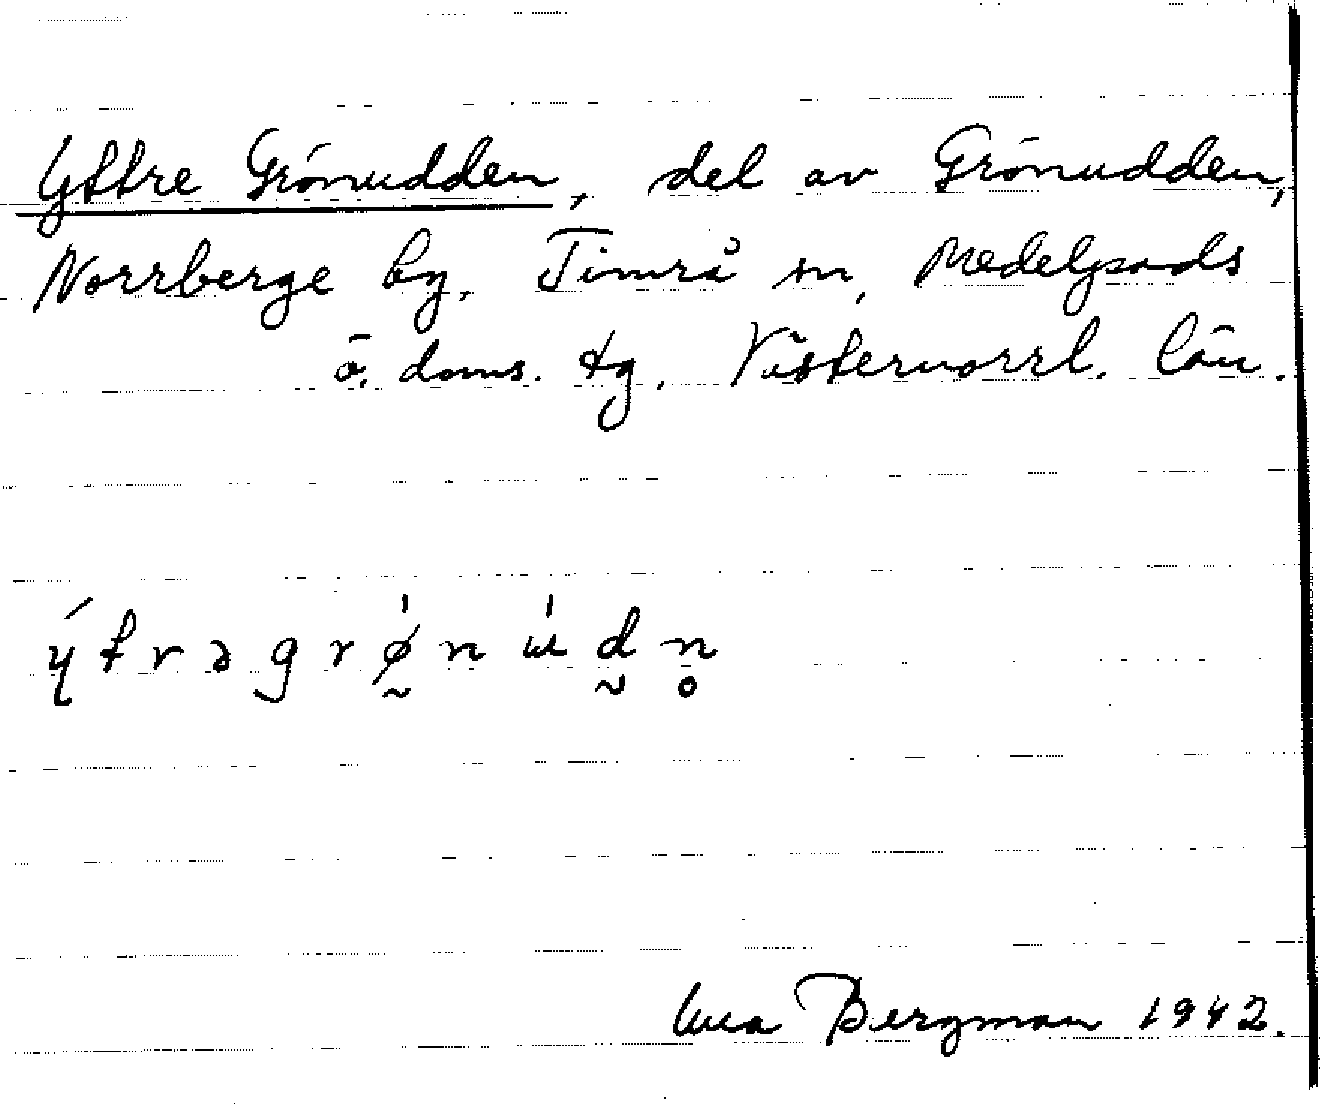 Yttre Grönudden, del av Grönudden,
Norrberge by, Timrå sn, Medelpads
ö. doms. tg. Västernorrl. län.
ýtrəgrø̰nu̍d̰n̥
Bergman 1942.